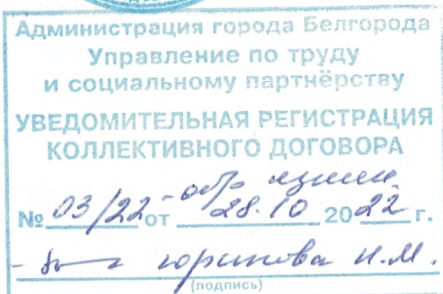 Администрация города Белгорода
Управление по труду
и социальному партнёрству
УВЕДОМИТЕЛЬНАЯ РЕГИСТРАЦИЯ
КОЛЛЕКТИВНОГО ДОГОВОРА
№ 03/22 от 28.10 2022 г.
И.М.
(подпись)